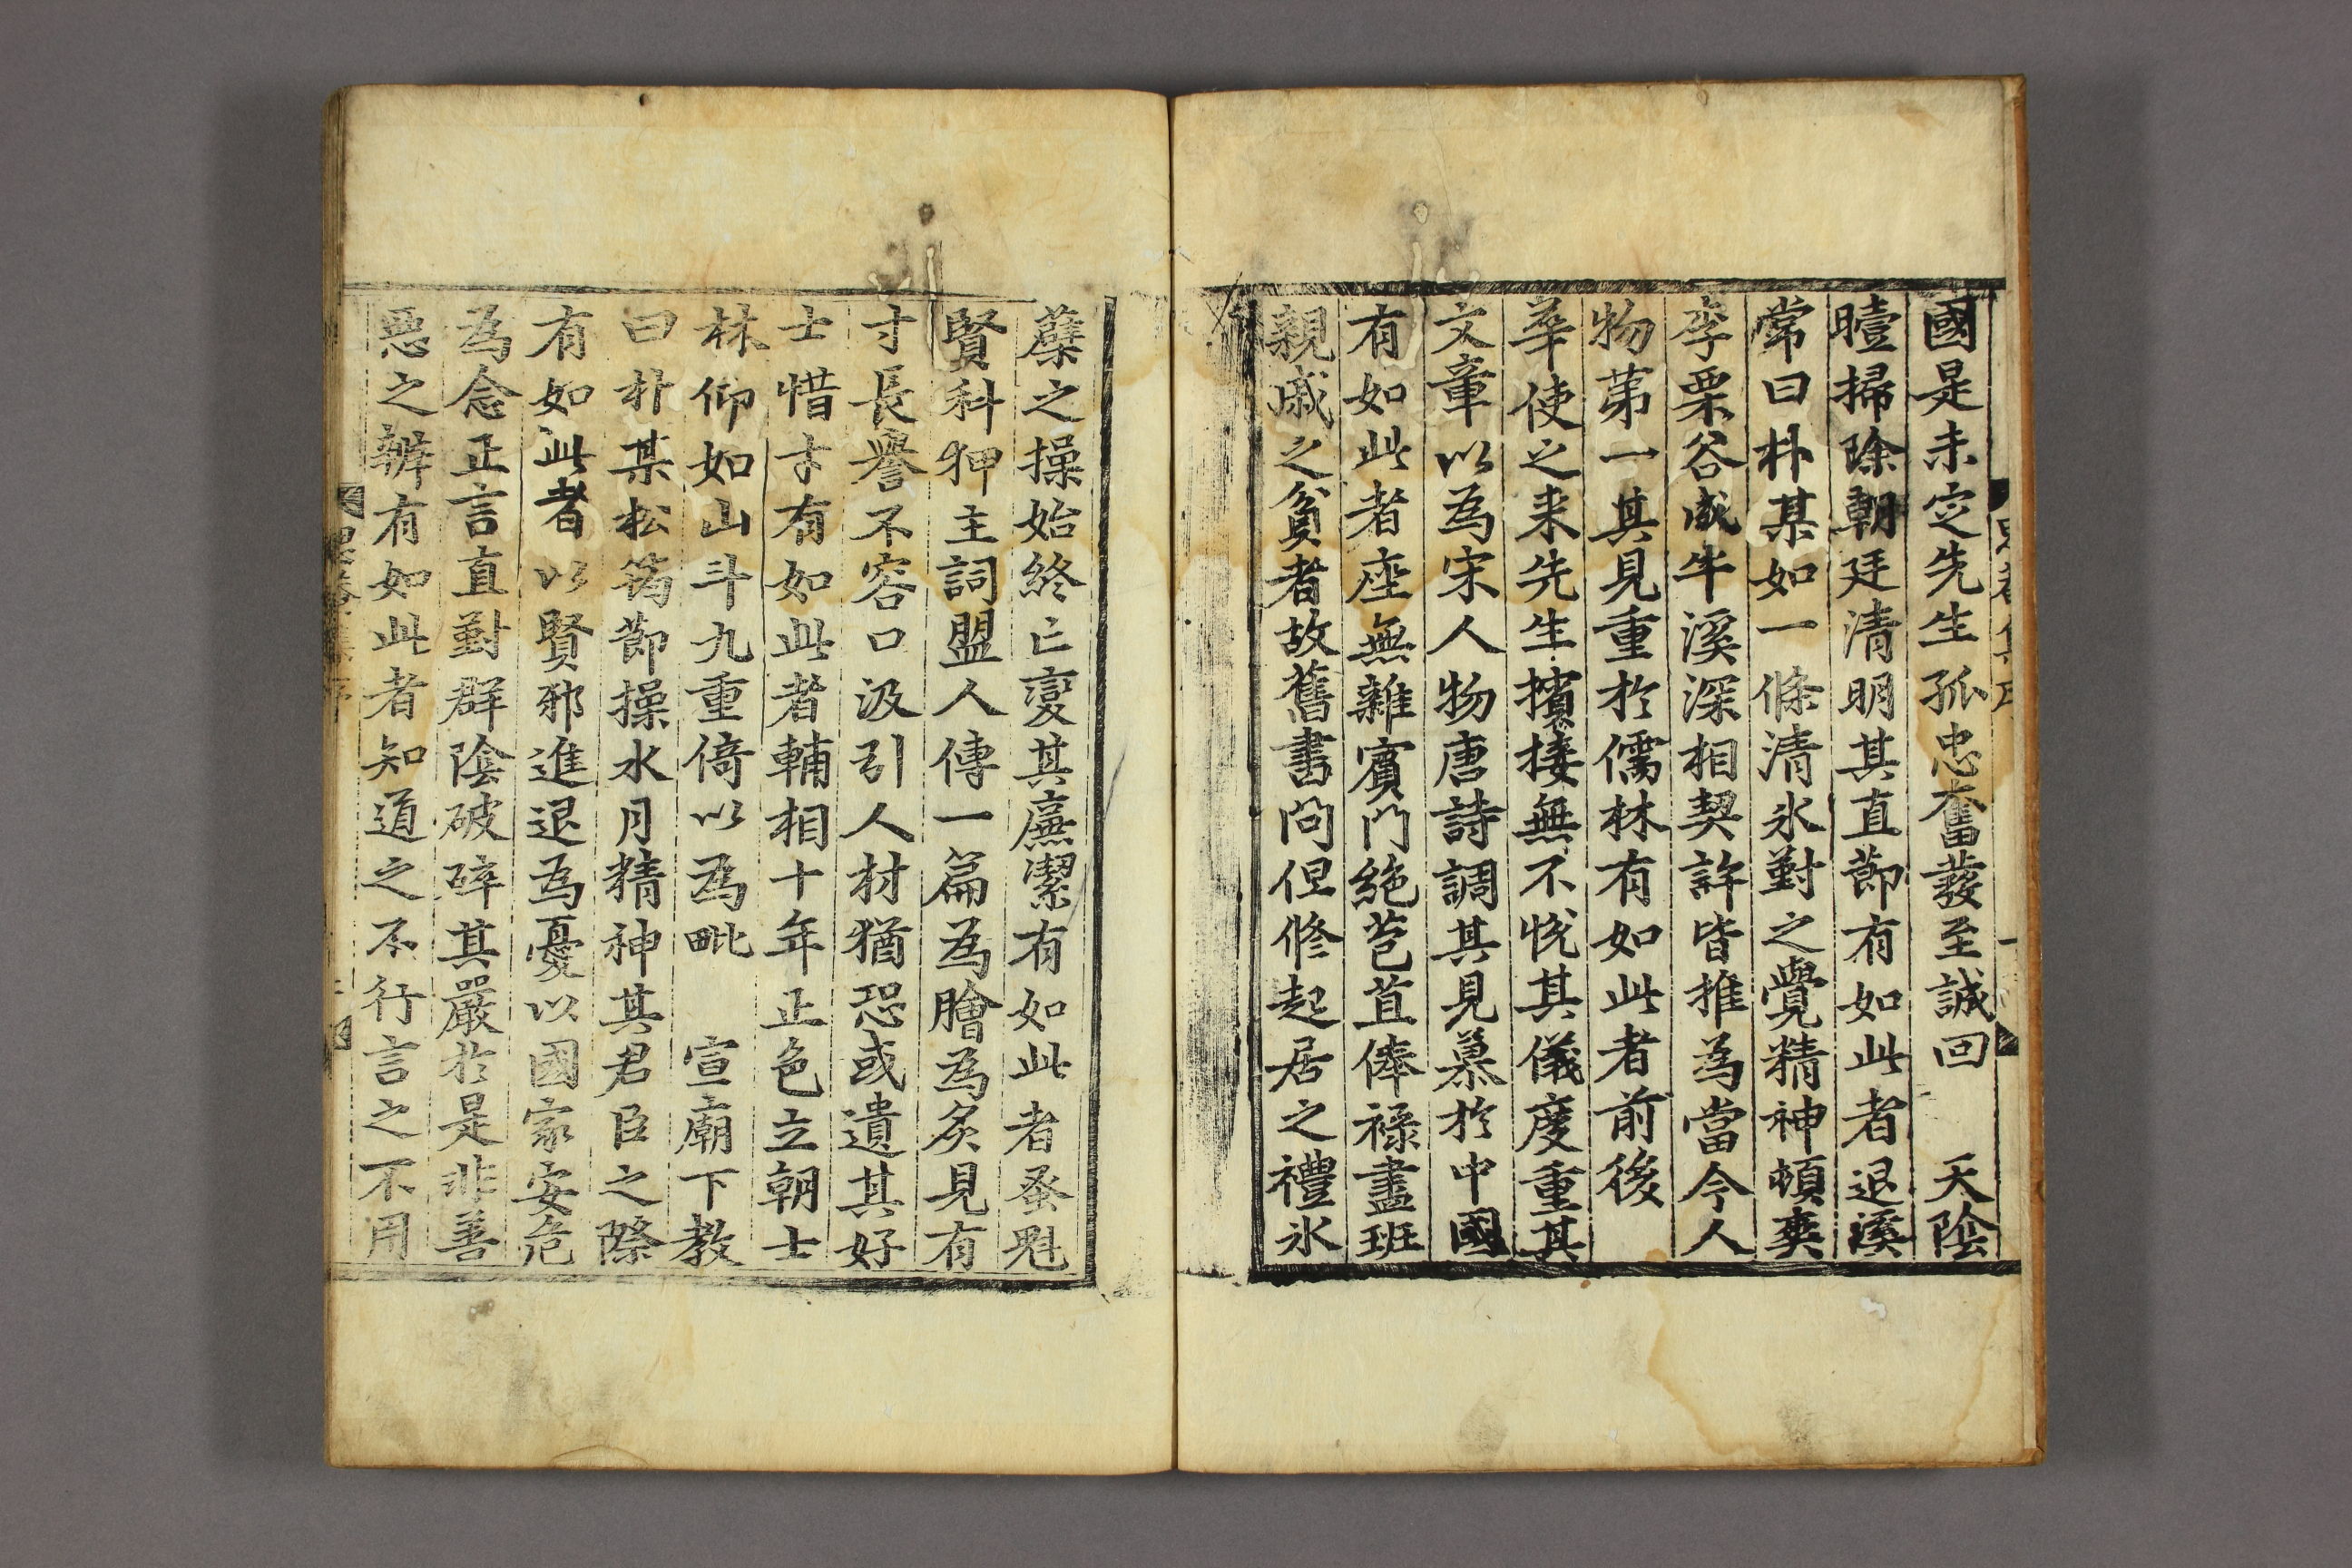 國是未定先生孤忠奮發至誠回　天陰
曀掃除朝廷清明其直節有如此者退溪
常曰朴某如一條清氷對之覺精神頓爽
李栗谷成牛溪深相契許皆推為當今人
物苐一其見重於儒林有如此者前後
華使之来先生擯接無不悅其儀度重其
文章以為宋人物唐詩調其見慕於中國
有如此者座無雜賓門絶苞苴俸祿盡班
親戚之貧者故舊書問但修起居之禮氷
蘗之操始終亡變其廉潔有如此者蚤魁
賢科狎主詞盟人傳一篇為膾為炙見有
寸長譽不容口汲引人材猶恐或遺其好
士惜才有如此者輔相十年正色立朝士
林仰如山斗九重倚以為毗　宣廟下教
曰朴某松筠節操水月精神其君臣之際
有如此者以賢邪進退為憂以國家安危
為念正言直對群陰破碎其嚴於是非善
惡之辨有如此者知道之不行言之不用
思菴集序